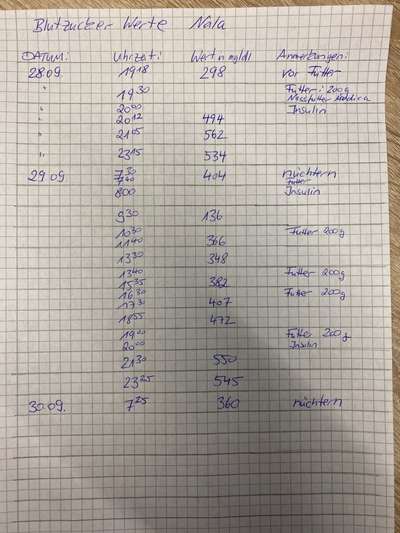 Blutzucker Werte Nala
DATUM: Uhrzeit: Wert in mg/dl Anmerkungen:
28.09 19 18 298 vor Futter
" 19 30 Futter: 200g
Nassfutter
20 00 Insulin
" 20 12 494
" 21 05 562
" 23 15 534
29.09 7 30 404 nüchtern
7 40 Futter
800 Insulin
9 30 136
10 30 Futter 200g
11 40 366
13 30 348
13 40 Futter 200g
15 35 382
16 30 Futter 200g
17 31 407
18 55 472
19 00 Futter 200g
20 00 Insulin
21 30 550
23 25 545
30.09. 7 25 360 nüchtern